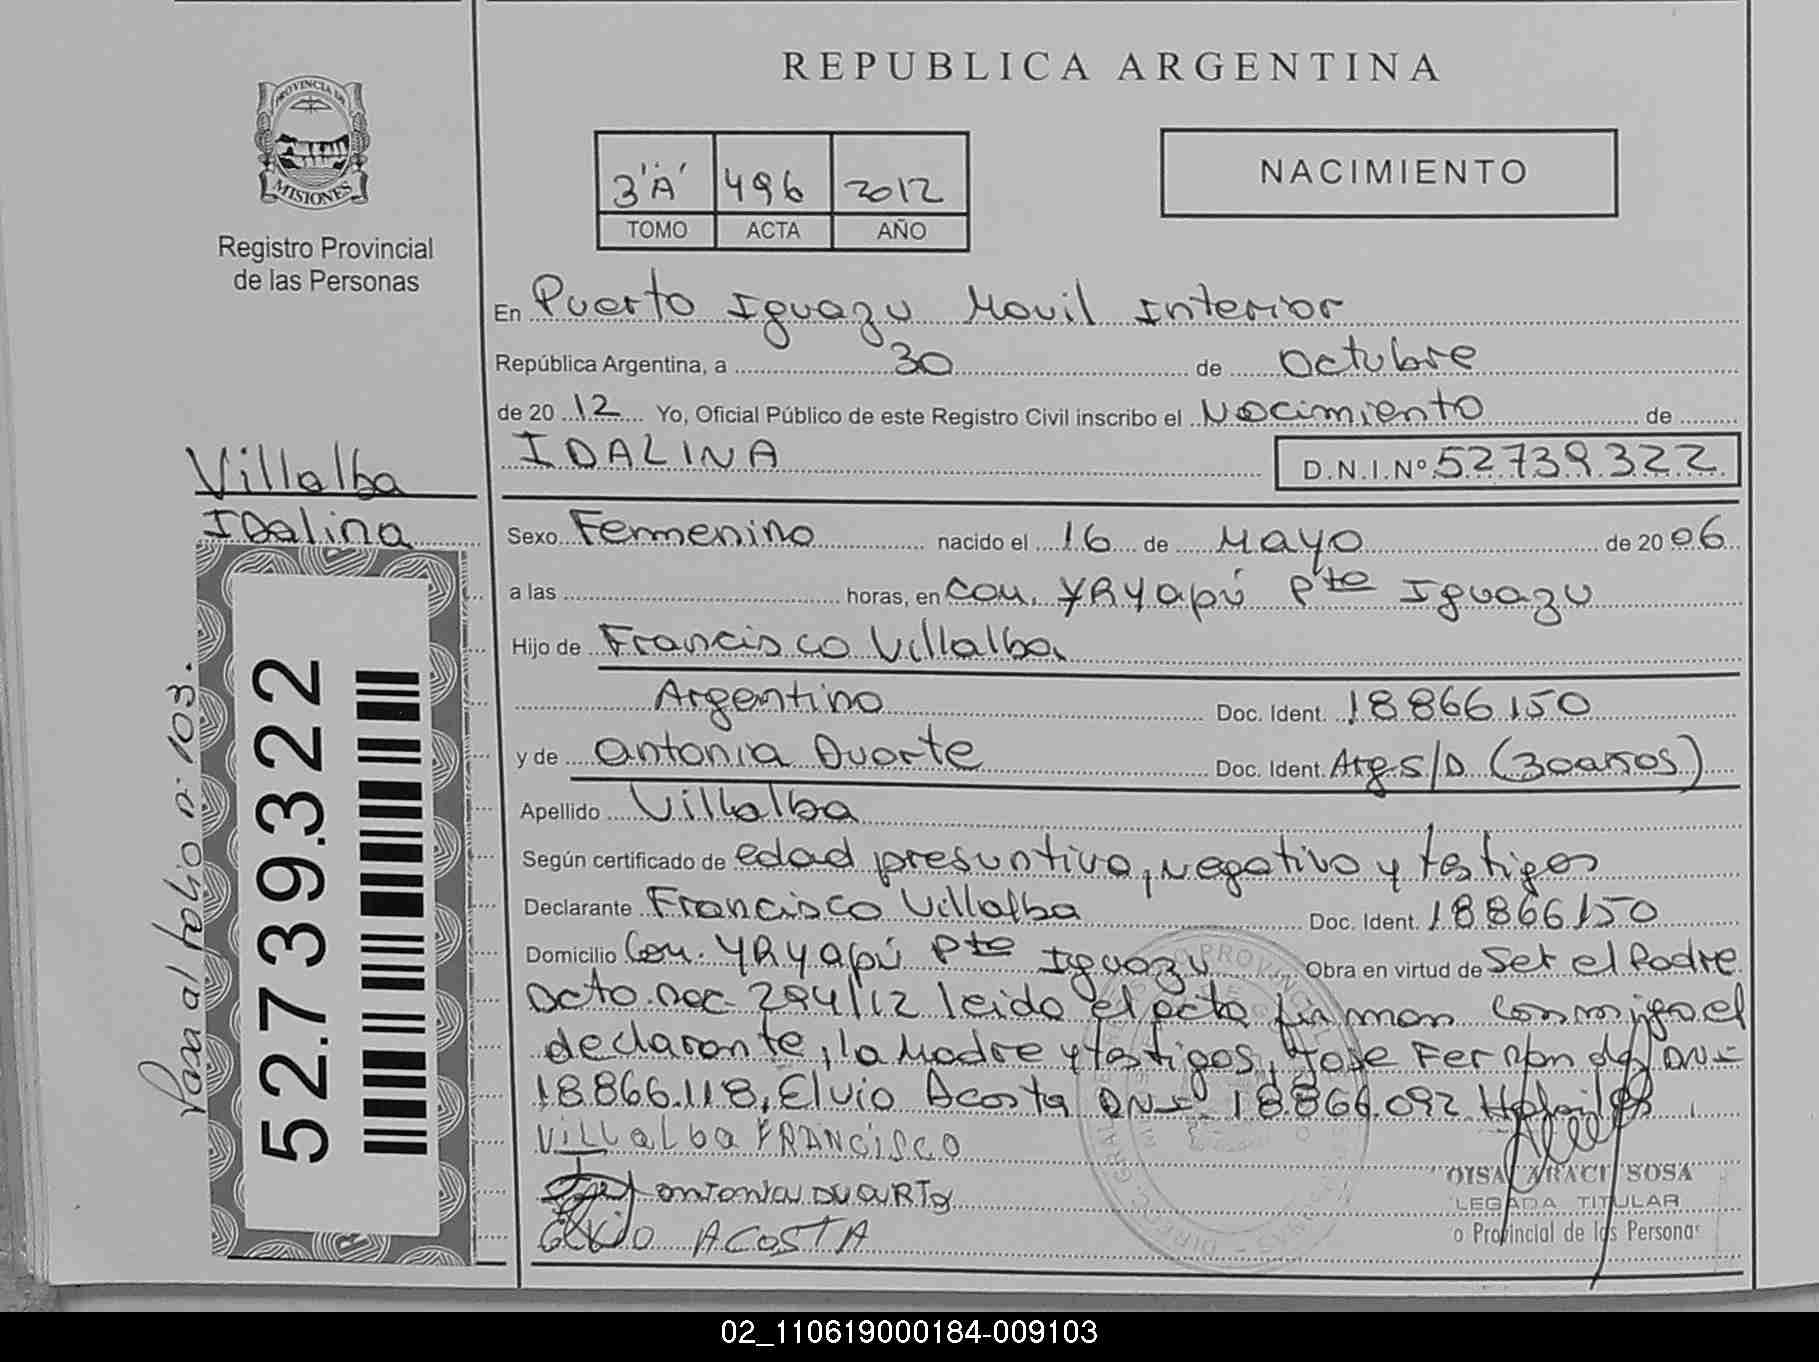 REPUBLICA ARGENTINA
PROVINCIA DE
MISIONES
Registro Provincial
de las Personas
3 'A' 496 2012
TOMO ACTA AÑO
NACIMIENTO
En Puerto Iguazu Movil Interior
República Argentina, a 30 de Octubre
de 20 12 Yo, Oficial Público de este Registro Civil inscribo el Nacimiento de
IDALINA D.N.I.Nº 52.739.322
Villalba
Idalina
Sexo Femenino nacido el 16 de Mayo de 20 06
a las horas, en Com. YRYapú Pto Iguazu
Hijo de Francisco Villalba
Argentino Doc. Ident. 18866150
y de Antonia Duarte Doc. Ident. Arg. S/D (30 años)
Apellido Villalba
Según certificado de edad presuntiva, negativo y testigos
Declarante Francisco Villalba Doc. Ident. 18866150
Domicilio Com. YRYapú Pto Iguazu Obra en virtud de Ser el Padre
Dcto. Nac. 294/12 leido el acta firman conmigo el
declarante, la Madre y testigos, Jose Fernando DNI
18.866.118, Elvio Acosta DNI 18866.092
VILLALBA FRANCISCO
antonia DUARTe
ELVIO ACOSTA
ARACI SOSA
LEGADA TITULAR
o Provincial de las Persona
Pasa al folio n: 103.
52.739.322
02_110619000184-009103